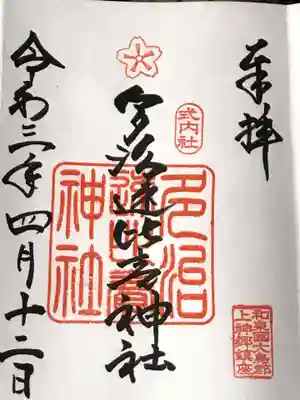 奉拝
式内社
多治速比売神社
多治
速比賣
神社
和泉國大鳥郡
上神郷鎮座
令和三年四月十二日